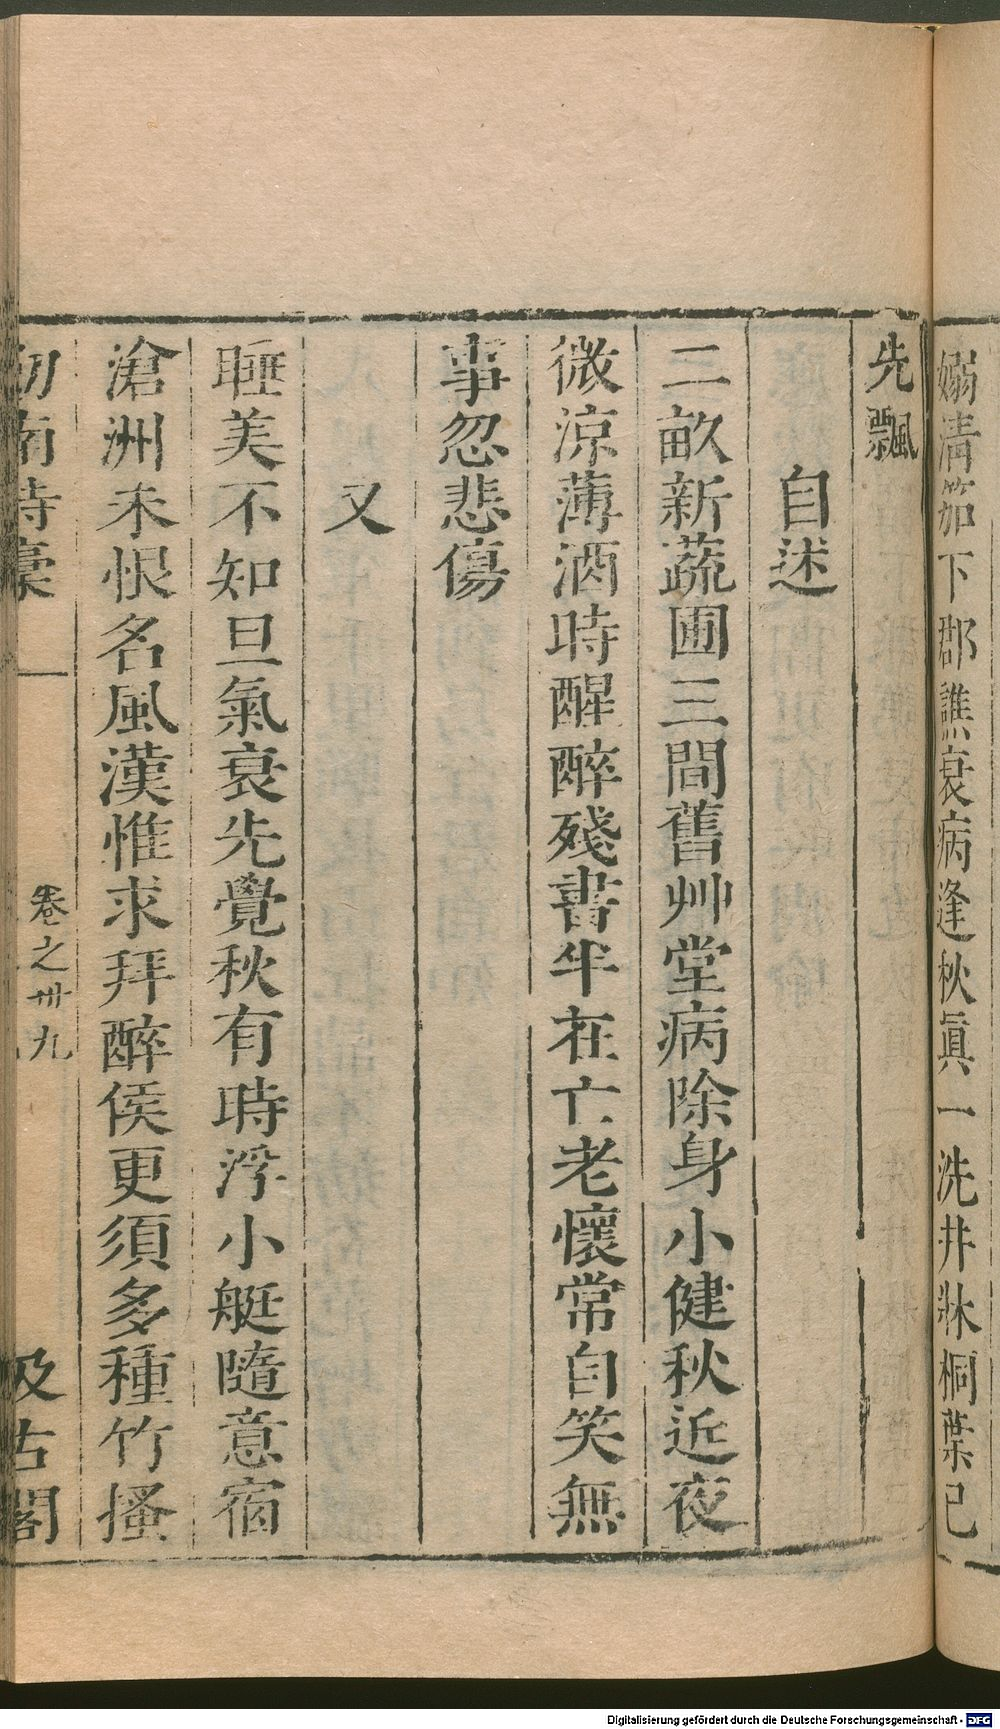 嫋清笳下郡譙衰病逢秋眞一洗井牀桐葉已
先飄
自述
二畝新蔬圃三間舊艸堂病除身小健秋近夜
微涼薄酒時醒醉殘書半在亡老懷常自笑無
事忽悲傷
又
睡美不知旦氣衰先覺秋有時浮小艇隨意宿
滄洲未恨名風漢惟求拜醉侯更須多種竹搔
劒南詩稾
卷之卅九
汲古閣
Digitalisierung gefördert durch die Deutsche Forschungsgemeinschaft - DFG